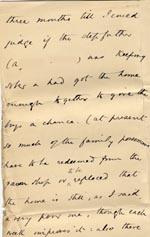 three months till I could
judge if the stepfather
(a        ) was keeping
sober & had got the home
enough together to give the
boys a chance. (at present
so much of the family possessions
have to be redeemed from the
pawn shop or replaced that
to be
the home is still, as I said
a very poor one, though each
week improves it: also there